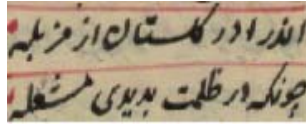 اندر ا در کلستان از مزبله
چونکه در ظلمت بدیدی مشعله